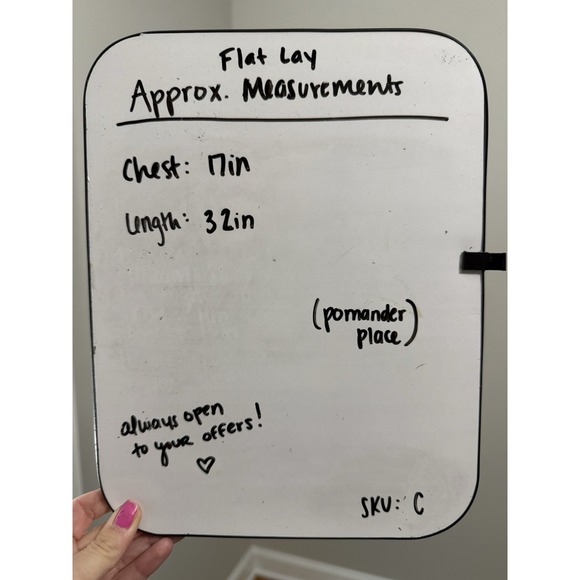 Flat Lay
Approx. Measurements
Chest: 17in
Length: 32in
(pomander
place)
always open
to your offers!
SKU: C